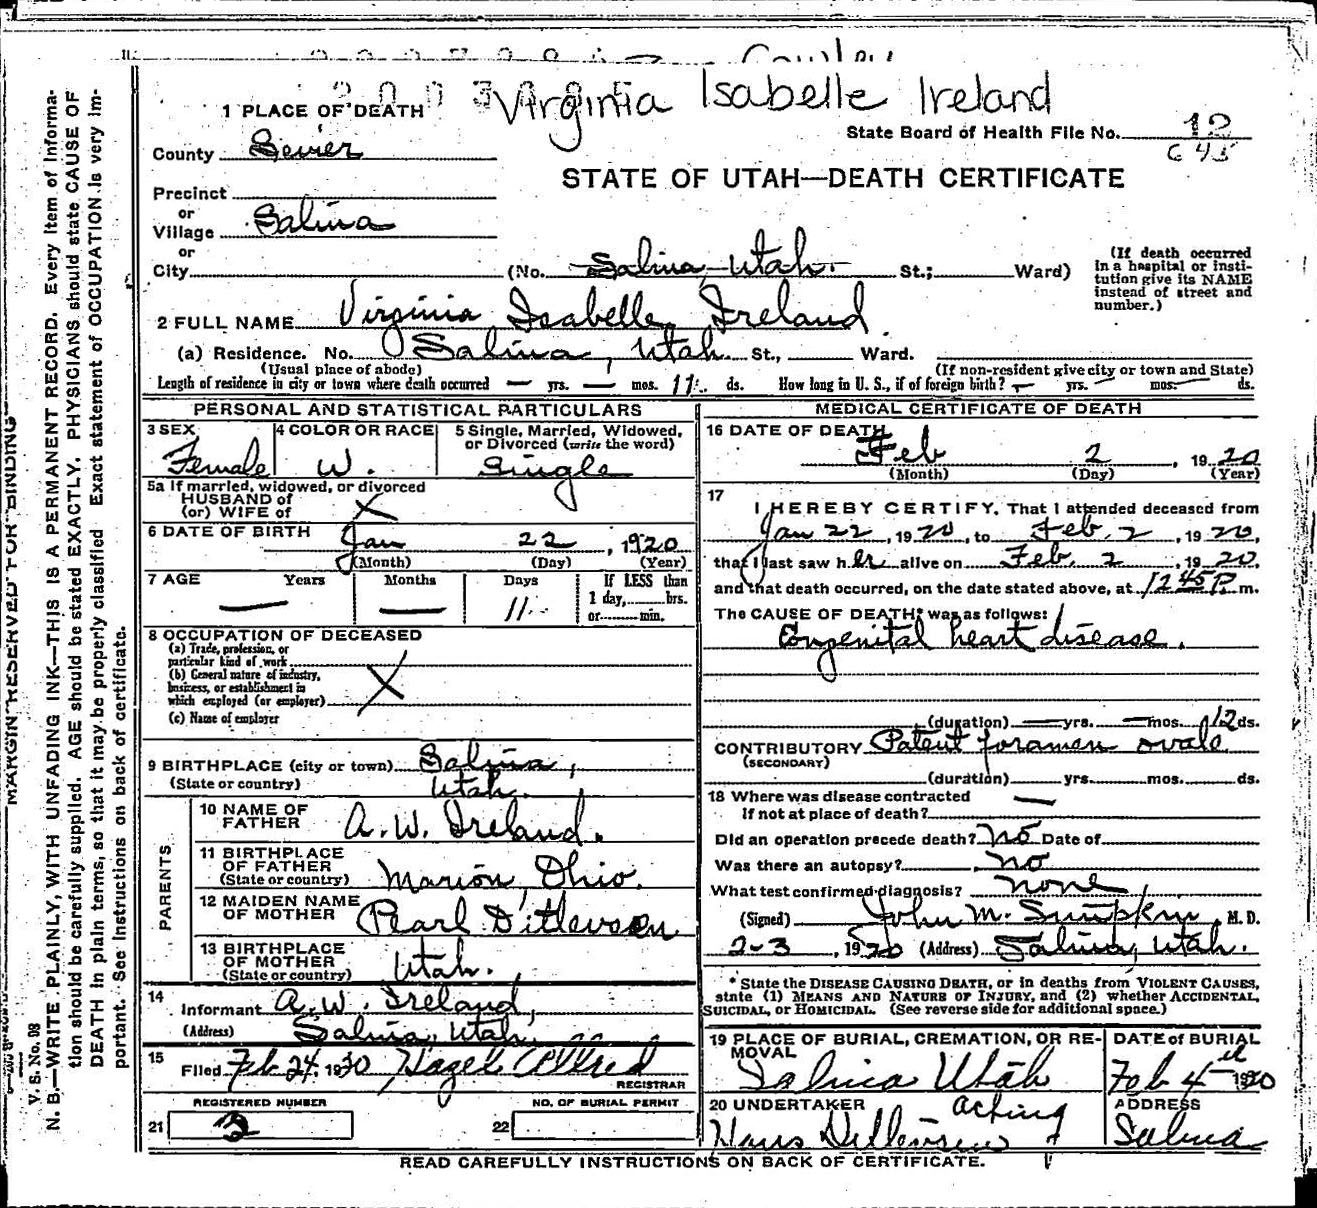 Virginia Isabelle Ireland
1 PLACE OF DEATH
State Board of Health File No. 12
645
County Sevier
STATE OF UTAH—DEATH CERTIFICATE
Precinct
or
Village Salina
or
City (No. Salina, Utah. St.; Ward)
(If death occurred in a hospital or institution give its NAME instead of street and number.)
2 FULL NAME Virginia Isabelle Ireland.
(a) Residence. No. Salina, Utah. St., Ward.
(Usual place of abode) (If non-resident give city or town and State)
Length of residence in city or town where death occurred — yrs. — mos. 11 ds. How long in U. S., if of foreign birth? — yrs. — mos. — ds.
PERSONAL AND STATISTICAL PARTICULARS
3 SEX Female
4 COLOR OR RACE W.
5 Single, Married, Widowed, or Divorced (write the word) Single
5a If married, widowed, or divorced
HUSBAND of
(or) WIFE of X
6 DATE OF BIRTH Jan 22, 1920
(Month) (Day) (Year)
7 AGE Years — Months — Days 11 If LESS than
1 day, hrs.
or min.
8 OCCUPATION OF DECEASED
(a) Trade, profession, or
particular kind of work
(b) General nature of industry,
business, or establishment in
which employed (or employer) X
(c) Name of employer
9 BIRTHPLACE (city or town) Salina,
(State or country) Utah.
PARENTS
10 NAME OF FATHER A. W. Ireland.
11 BIRTHPLACE OF FATHER (State or country) Marion, Ohio.
12 MAIDEN NAME OF MOTHER Pearl Ditlevsen
13 BIRTHPLACE OF MOTHER (State or country) Utah.
14 Informant A. W. Ireland,
(Address) Salina, Utah.
15 Filed Feb 24, 1920 Hazel Allred
REGISTRAR
REGISTERED NUMBER
NO. OF BURIAL PERMIT
21 2 22
MEDICAL CERTIFICATE OF DEATH
16 DATE OF DEATH
Feb 2, 1920
(Month) (Day) (Year)
17 I HEREBY CERTIFY, That I attended deceased from
Jan 22, 1920, to Feb. 2, 1920,
that I last saw her alive on Feb. 2, 1920,
and that death occurred, on the date stated above, at 12 45 P. m.
The CAUSE OF DEATH* was as follows:
Congenital heart disease.
(duration) — yrs. — mos. 12 ds.
CONTRIBUTORY Patent foramen ovale
(SECONDARY)
(duration) yrs. mos. ds.
18 Where was disease contracted
If not at place of death? —
Did an operation precede death? No Date of
Was there an autopsy? no
What test confirmed diagnosis? none
(Signed) John M. Simpkin, M. D.
2-3, 1920 (Address) Salina, Utah.
* State the DISEASE CAUSING DEATH, or in deaths from VIOLENT CAUSES,
state (1) MEANS AND NATURE OF INJURY, and (2) whether ACCIDENTAL,
SUICIDAL, or HOMICIDAL. (See reverse side for additional space.)
19 PLACE OF BURIAL, CREMATION, OR REMOVAL Salina Utah
DATE of BURIAL Feb 4 1920
20 UNDERTAKER acting
Hans Ditlevsen
ADDRESS Salina
READ CAREFULLY INSTRUCTIONS ON BACK OF CERTIFICATE.
MARGIN RESERVED FOR BINDING
V. S. No. 98
N. B.—WRITE PLAINLY, WITH UNFADING INK—THIS IS A PERMANENT RECORD. Every item of Informa-
tion should be carefully supplied. AGE should be stated EXACTLY. PHYSICIANS should state CAUSE OF
DEATH in plain terms, so that it may be properly classified Exact statement of OCCUPATION is very im-
portant. See Instructions on back of certificate.